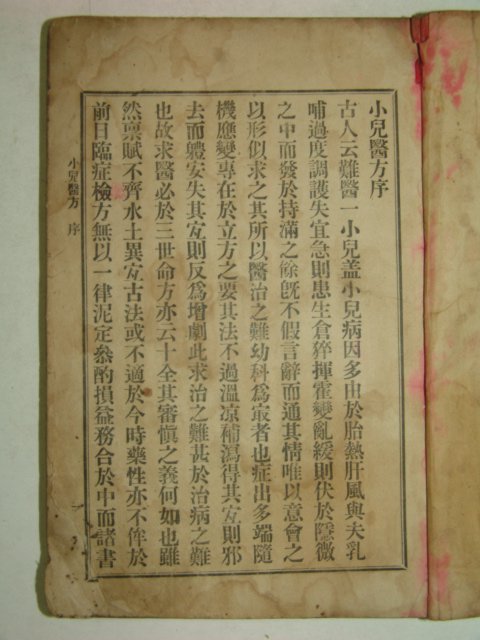 小兒醫方序
古人云難醫一小兒盖小兒病因多由於胎熱肝風與夫乳
哺過度調護失宜急則患生倉猝揮霍變亂緩則伏於隱微
之中而發於持滿之餘旣不假言辭而通其情唯以意會之
以形似求之其所以醫治之難幼科爲㝡者也症出多端隨
機應變專在於立方之要其法不過溫凉補瀉得其冝則邪
去而軆安失其冝則反爲增劇此求治之難甚於治病之難
也故求醫必於三世命方亦云十全其審愼之義何如也雖
然禀賦不齊水土異冝古法或不適於今時藥性亦不侔於
前日臨症檢方無以一律泥定叅酌損益務合於中而諸書
小兒醫方 序